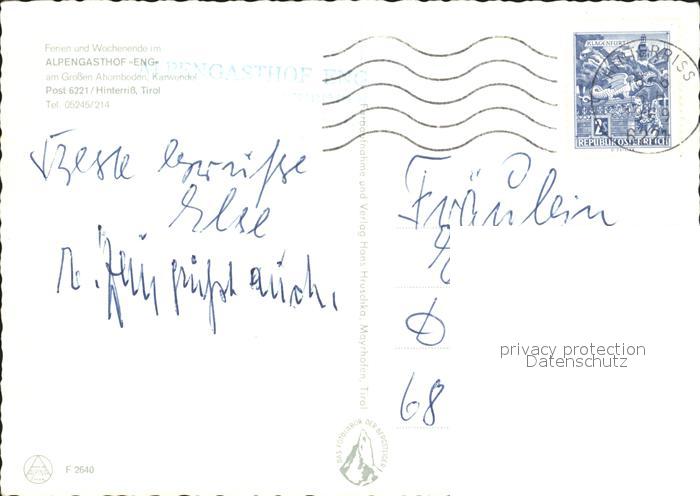 Ferien und Wochenende im
ALPENGASTHOF »ENG«
am Großen Ahornboden, Karwendel
Post 6221 / Hinterriß, Tirol
Tel. 05245/214
ALPENGASTHOF ENG
Beste Grüsse
Else
grüßt auch.
Fotoaufnahme und Verlag Hans Hruschka, Mayrhofen, Tirol
DAS FOTOHAUS DER BERGSTEIGER
F 2640
KLAGENFURT
REPUBLIK ÖSTERREICH
HINTERRISS
Fräulein
D
68
privacy protection
Datenschutz